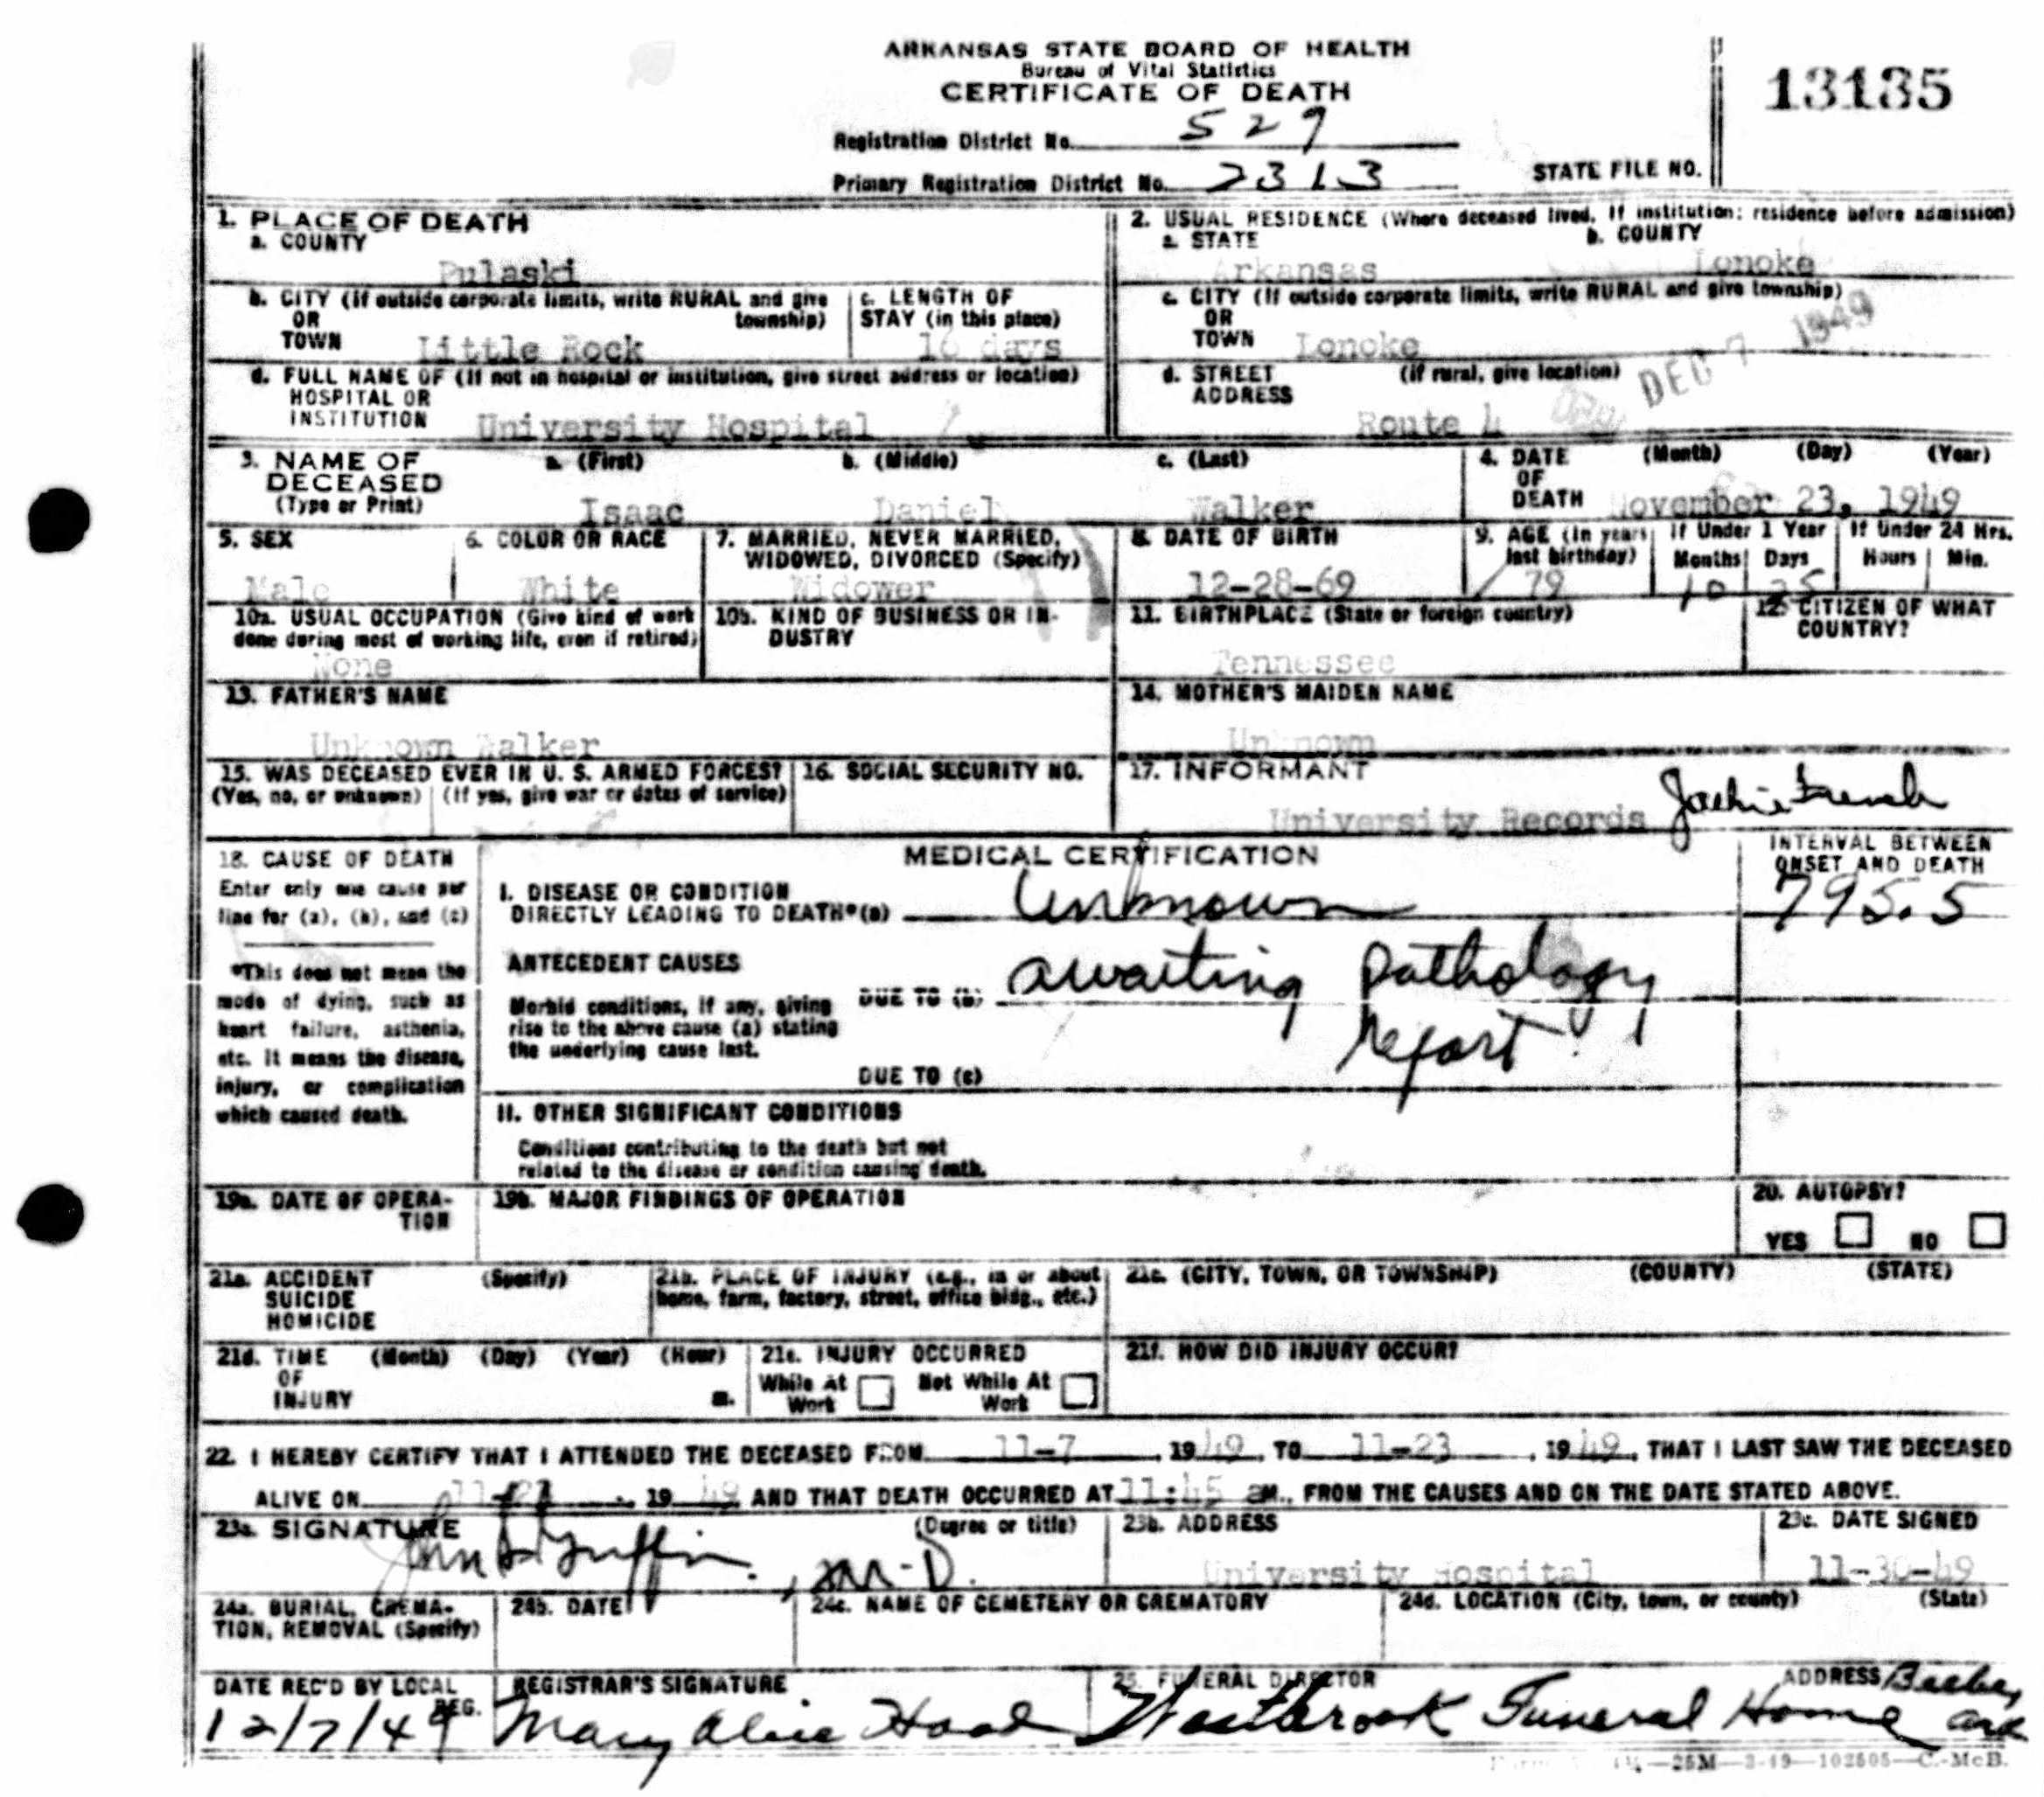 ARKANSAS STATE BOARD OF HEALTH
Bureau of Vital Statistics
CERTIFICATE OF DEATH
13135
Registration District No. 529
Primary Registration District No. 2313
STATE FILE NO.
1. PLACE OF DEATH
a. COUNTY
Pulaski
2. USUAL RESIDENCE (Where deceased lived, If institution: residence before admission)
a. STATE b. COUNTY
Arkansas Lonoke
b. CITY (If outside corporate limits, write RURAL and give township)
OR
TOWN Little Rock
c. LENGTH OF
STAY (in this place)
16 days
c. CITY (If outside corporate limits, write RURAL and give township)
OR
TOWN Lonoke
DEC 7 1949
d. FULL NAME OF (If not in hospital or institution, give street address or location)
HOSPITAL OR
INSTITUTION University Hospital
d. STREET (If rural, give location)
ADDRESS
Route 4
3. NAME OF DECEASED
(Type or Print)
a. (First) b. (Middle) c. (Last)
Isaac Daniel Walker
4. DATE OF DEATH (Month) (Day) (Year)
November 23, 1949
5. SEX
Male
6. COLOR OR RACE
White
7. MARRIED, NEVER MARRIED,
WIDOWED, DIVORCED (Specify)
Widower
8. DATE OF BIRTH
12-28-69
9. AGE (In years last birthday)
79
If Under 1 Year
Months Days
10 25
If Under 24 Hrs.
Hours Min.
10a. USUAL OCCUPATION (Give kind of work
done during most of working life, even if retired)
None
10b. KIND OF BUSINESS OR IN-
DUSTRY
11. BIRTHPLACE (State or foreign country)
Tennessee
12. CITIZEN OF WHAT
COUNTRY?
13. FATHER'S NAME
Unknown Walker
14. MOTHER'S MAIDEN NAME
Unknown
15. WAS DECEASED EVER IN U. S. ARMED FORCES?
(Yes, no, or unknown) (If yes, give war or dates of service)
16. SOCIAL SECURITY NO.
17. INFORMANT
University Records Jackie French
18. CAUSE OF DEATH
Enter only one cause per
line for (a), (b), and (c)
*This does not mean the
mode of dying, such as
heart failure, asthenia,
etc. It means the disease,
injury, or complication
which caused death.
MEDICAL CERTIFICATION
INTERVAL BETWEEN
ONSET AND DEATH
795.5
I. DISEASE OR CONDITION
DIRECTLY LEADING TO DEATH*(a) Unknown
ANTECEDENT CAUSES
Morbid conditions, if any, giving
rise to the above cause (a) stating
the underlying cause last.
DUE TO (b) awaiting pathology
report
DUE TO (c)
II. OTHER SIGNIFICANT CONDITIONS
Conditions contributing to the death but not
related to the disease or condition causing death.
19a. DATE OF OPERA-
TION
19b. MAJOR FINDINGS OF OPERATION
20. AUTOPSY?
YES NO
21a. ACCIDENT (Specify)
SUICIDE
HOMICIDE
21b. PLACE OF INJURY (e.g., in or about
home, farm, factory, street, office bldg., etc.)
21c. (CITY, TOWN, OR TOWNSHIP) (COUNTY) (STATE)
21d. TIME (Month) (Day) (Year) (Hour)
OF
INJURY m.
21e. INJURY OCCURRED
While At Work Not While At Work
21f. HOW DID INJURY OCCUR?
22. I HEREBY CERTIFY THAT I ATTENDED THE DECEASED FROM 11-7, 1949, TO 11-23, 1949, THAT I LAST SAW THE DECEASED
ALIVE ON 19 49, AND THAT DEATH OCCURRED AT 11:45 aM., FROM THE CAUSES AND ON THE DATE STATED ABOVE.
23a. SIGNATURE (Degree or title)
John Griffin, M.D.
23b. ADDRESS
University Hospital
23c. DATE SIGNED
11-30-49
24a. BURIAL, CREMA-
TION, REMOVAL (Specify)
24b. DATE
24c. NAME OF CEMETERY OR CREMATORY
24d. LOCATION (City, town, or county) (State)
DATE REC'D BY LOCAL REG.
12/7/49
REGISTRAR'S SIGNATURE
Mary Alice Hood
25. FUNERAL DIRECTOR ADDRESS
Westbrook Funeral Home Beebe, Ark
—25M—3-49—102505—C.-McB.